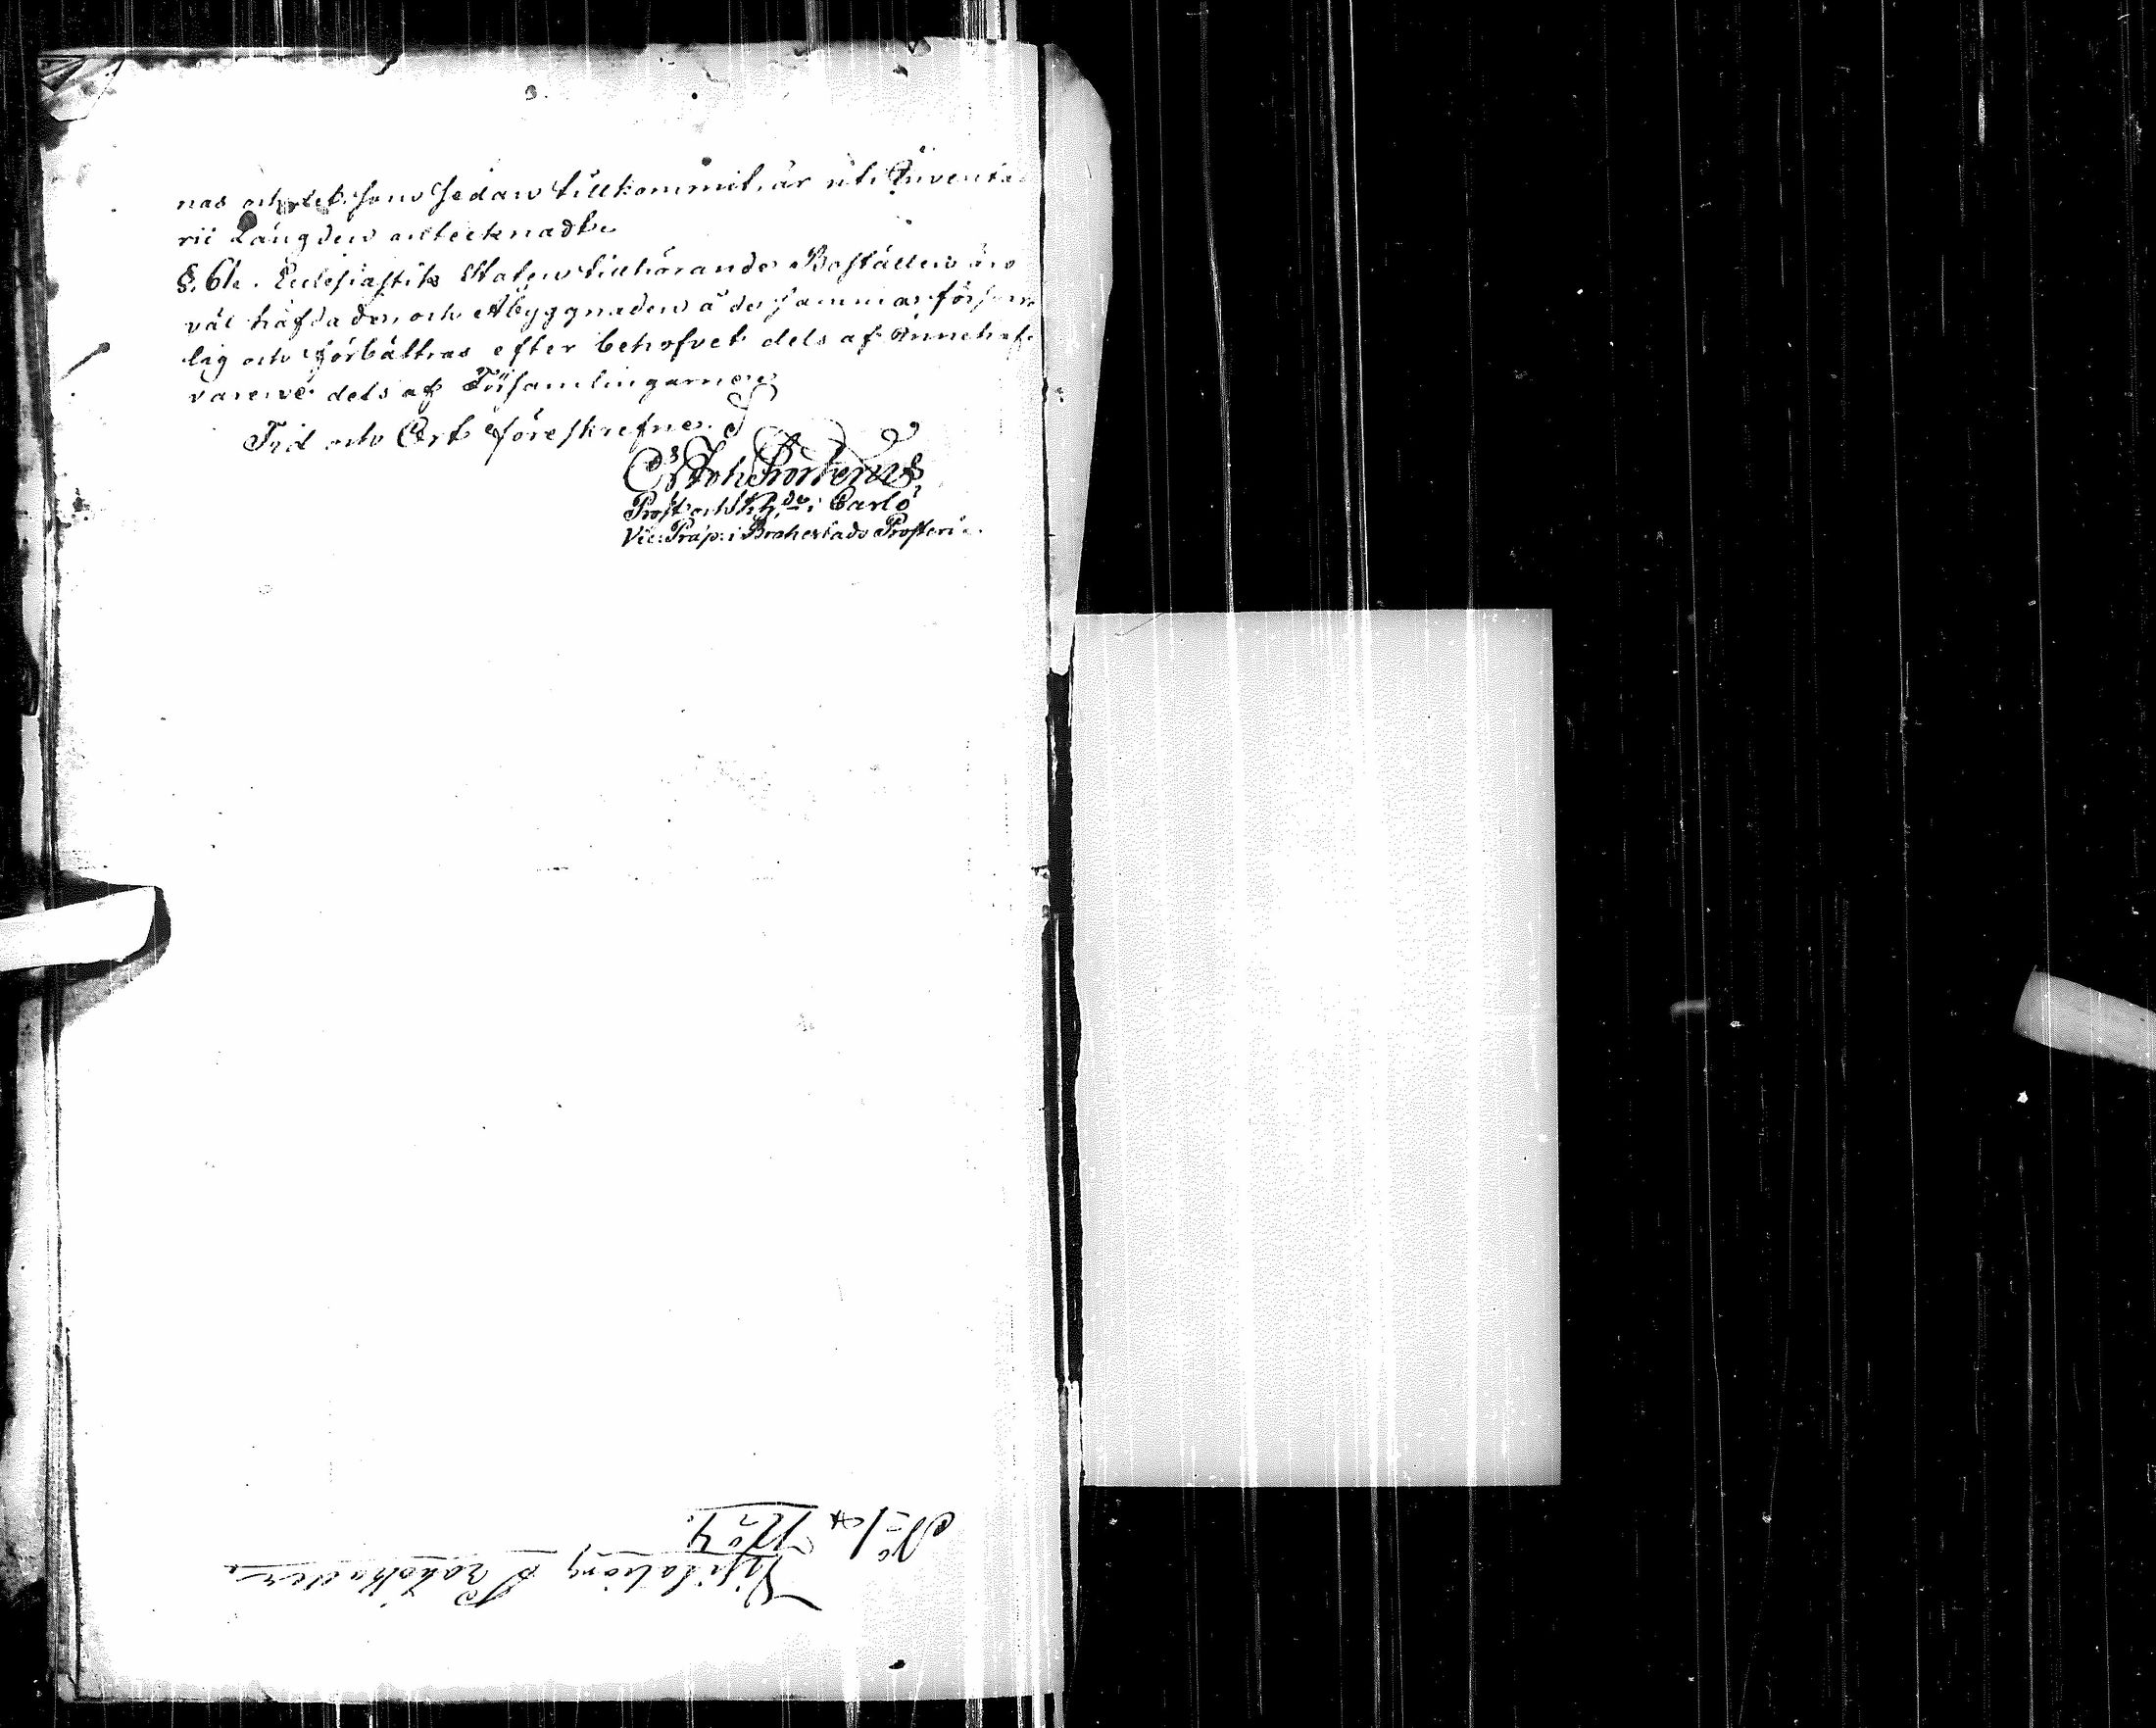 nas och det som sedan tillkommit, är uti Inventa-
rii Längden antecknadt.
§. 6te. Ecclesiastike Staten tillhörande Boställen äro
väl häfdade och Åbyggnaden å de samma försvar-
lig och förbättras efter behofvet dels af Innehaf-
varene dels af Församlingarne.
Tid och Ort föreskrefne.
Joh Frosterus
Prost och Khde i Carlö
Vic: Præp: i Brahestads Prosteri.
Visitations Protokoller